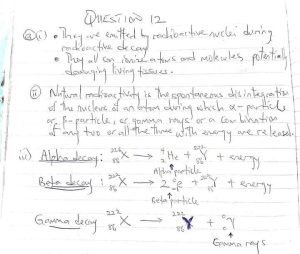 QUESTION 12
a(i) • They are emitted by radioactive nuclei during
radioactive decay
• They all can ionize atoms and molecules, potentially
damaging living tissues.
(ii) Natural radioactivity is the spontaneous disintegration
of the nucleus of an atom during which α-particle
or β-particle, or gamma rays or a combination
of any two or all the three with energy are released
iii) Alpha decay: X → ⁴₂He + Y + energy
Alpha particle
Beta decay: X → β + Y + energy
Beta particle
Gamma decay X → Y + γ
Gamma rays